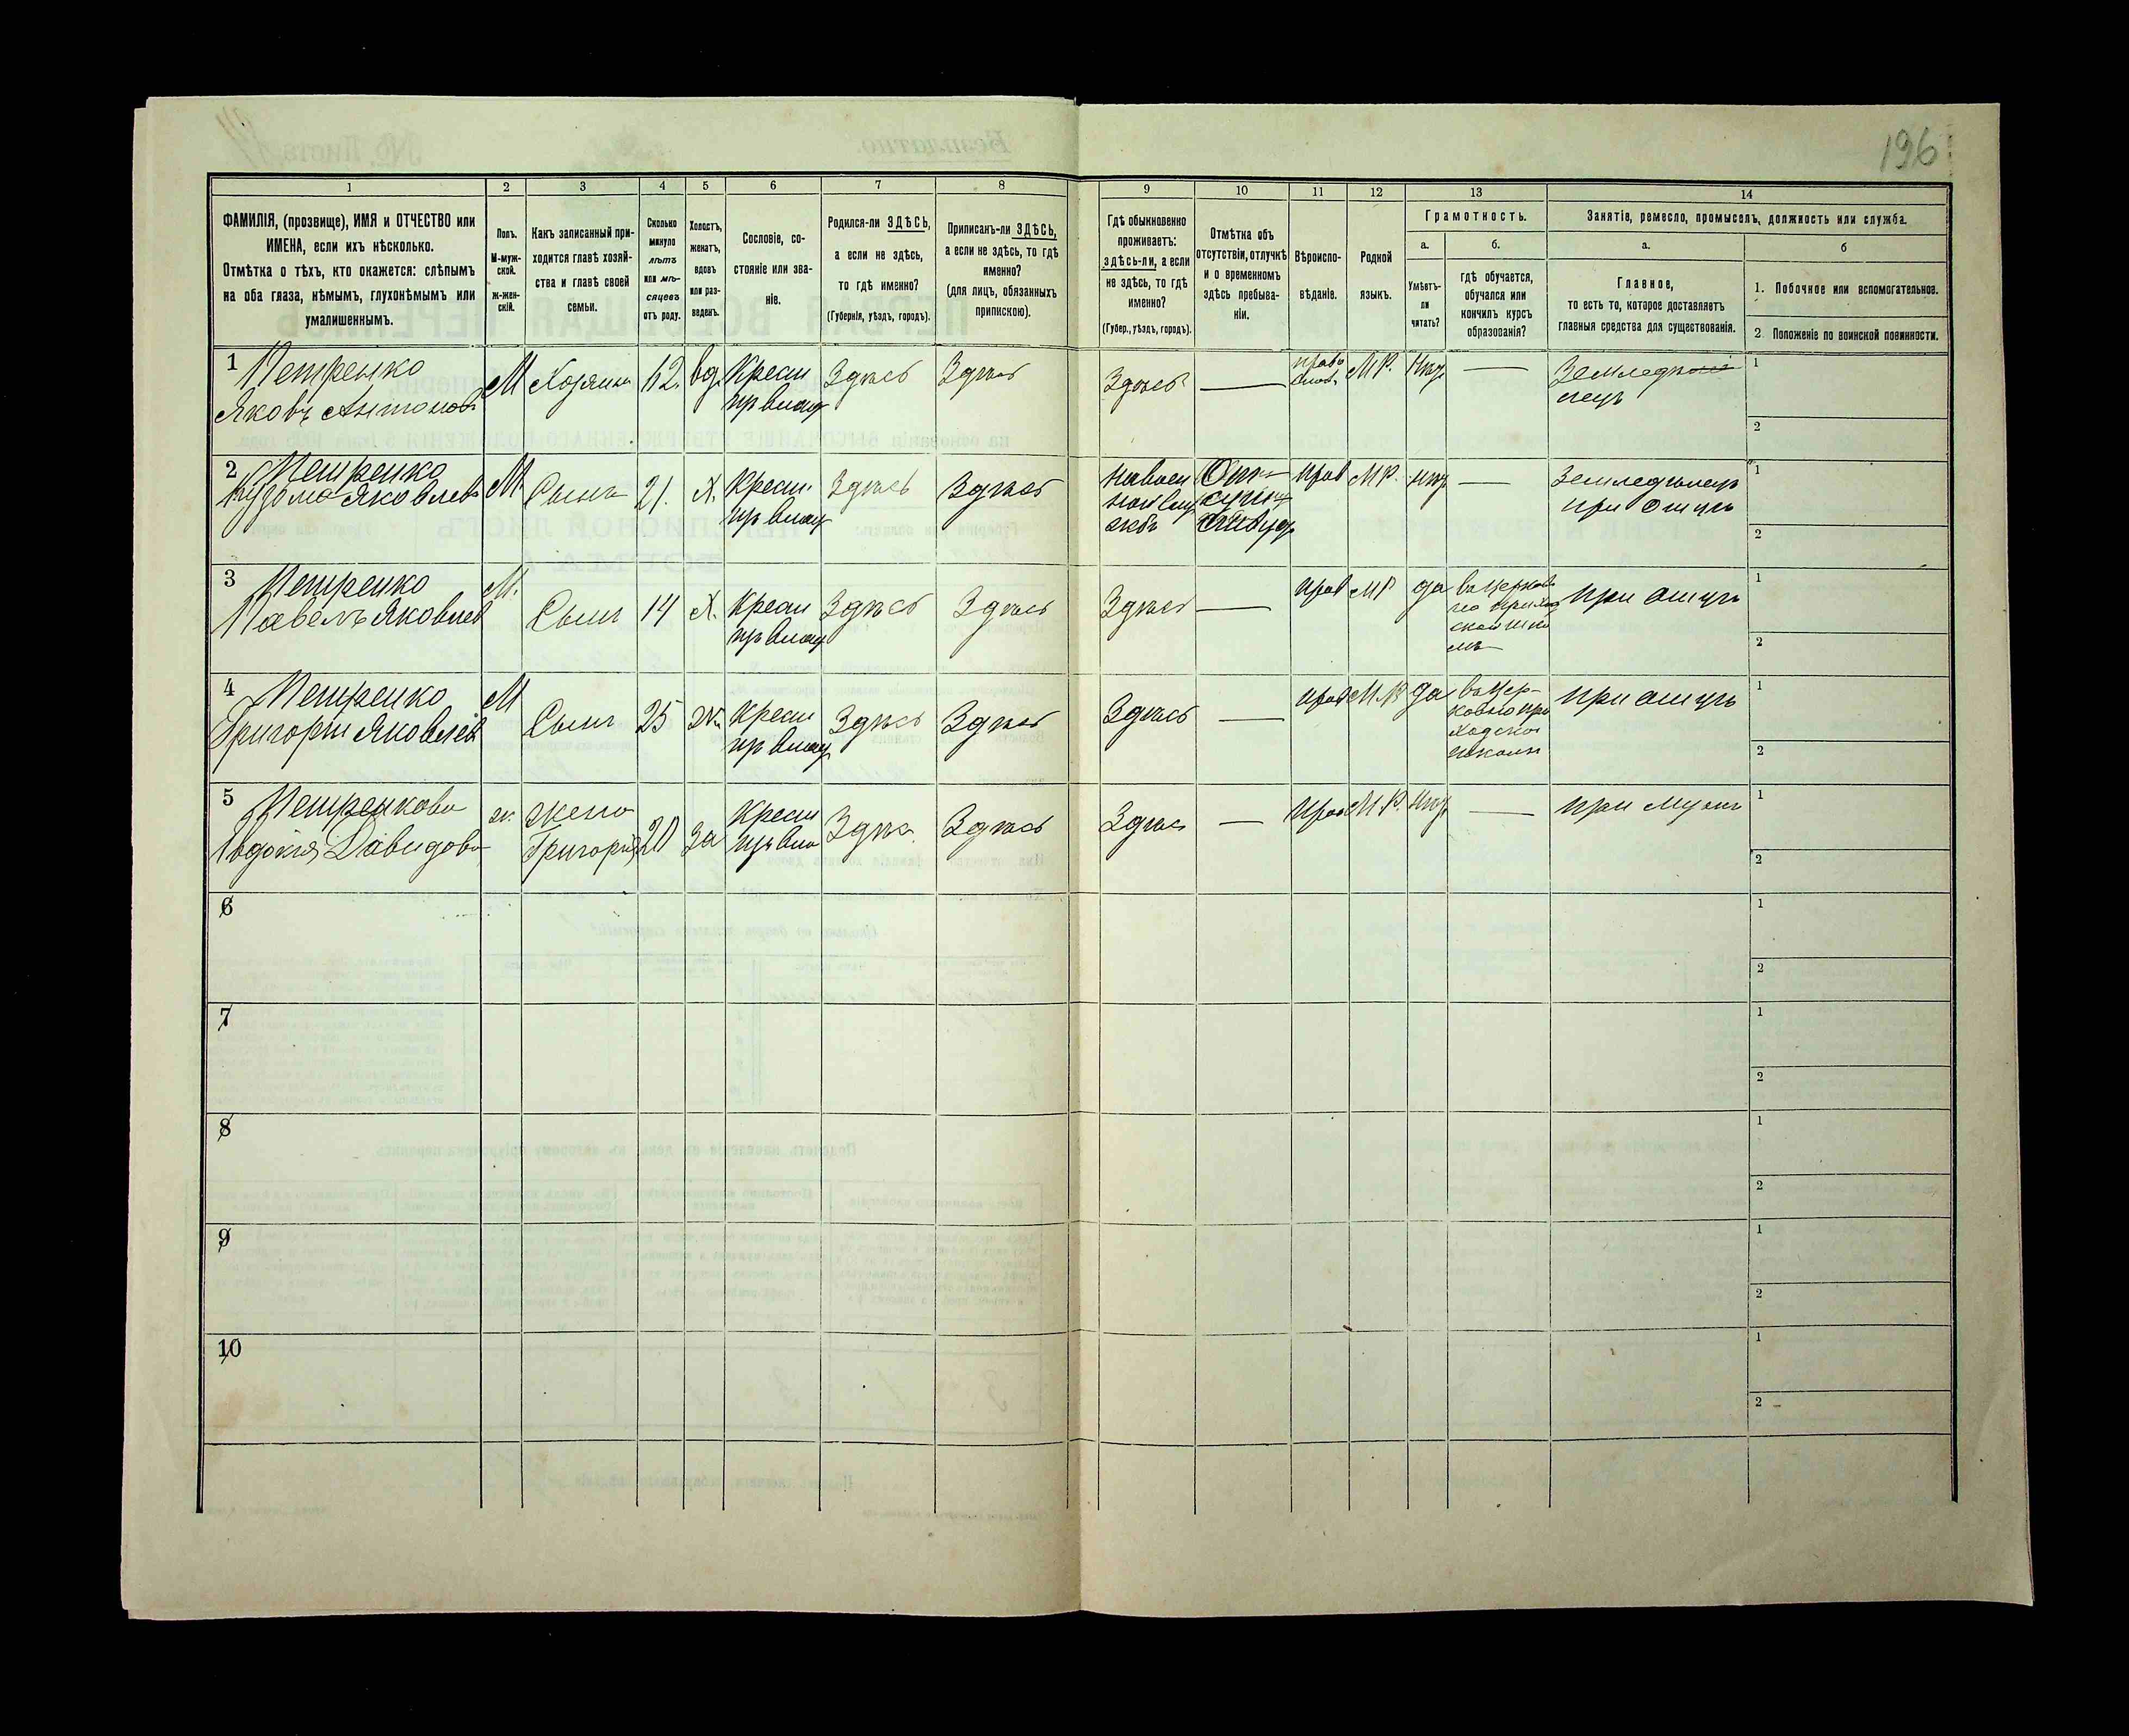 196
1 2 3 4 5 6 7 8 9 10 11 12 13 14
ФАМИЛІЯ, (прозвище), ИМЯ и ОТЧЕСТВО или
ИМЕНА, если ихъ нѣсколько.
Отмѣтка о тѣхъ, кто окажется: слѣпымъ
на оба глаза, нѣмымъ, глухонѣмымъ или
умалишеннымъ.
Полъ.
М-муж-
ской.
Ж-жен-
скій.
Какъ записанный при-
ходится главѣ хозяй-
ства и главѣ своей
семьи.
Сколько
минуло
лѣтъ
или мѣ-
сяцевъ
отъ роду.
Холостъ,
женатъ,
вдовъ
или раз-
веденъ.
Сословіе, со-
стояніе или зва-
ніе.
Родился-ли ЗДѢСЬ,
а если не здѣсь,
то гдѣ именно?
(Губернія, уѣздъ, городъ).
Приписанъ-ли ЗДѢСЬ,
а если не здѣсь, то гдѣ
именно?
(для лицъ, обязанныхъ
припискою).
Гдѣ обыкновенно
проживаетъ:
здѣсь-ли, а если
не здѣсь, то гдѣ
именно?
(Губер., уѣздъ, городъ).
Отмѣтка объ
отсутствіи, отлучкѣ
и о временномъ
здѣсь пребыва-
ніи.
Вѣроиспо-
вѣданіе.
Родной
языкъ.
Грамотность.
а.
Умѣетъ-
ли
читать?
б.
гдѣ обучается,
обучался или
кончилъ курсъ
образованія?
Занятіе, ремесло, промыселъ, должность или служба.
а.
Главное,
то есть то, которое доставляетъ
главныя средства для существованія.
б
1. Побочное или вспомогательное.
2. Положеніе по воинской повинности.
1 Петренко
Яковъ Антоновъ
М Хозяинъ вд. Крестн
Здѣсь Здѣсь Здѣсь — право
слав. М Р. Нѣт —
1
2
2 Петренко
Кузьма Яковлевъ
М Сынъ 21. Х. Крестн
Здѣсь Здѣсь
Прав М Р. нѣт —
Земледѣлецъ
при отцѣ
1
2
3 Петренко
Павелъ Яковлев
М. Сынъ 14 Х. Крестн
Здѣсь Здѣсь Здѣсь — прав М Р да
въ церковно
приход
ской шко
лѣ
при отцѣ
1
2
4 Петренко
Григорій Яковлев
М Сынъ 25 ж. Крестн
Здѣсь Здѣсь Здѣсь — прав М Р да
въ цер-
ковно при
ходско
школѣ
при отцѣ
1
2
5 Петренкова
Авдотія Давидова
ж. жена
Григорія 20 за Крестн
Здѣс Здѣсь Здѣс — Прав М. Р. Нѣт — при мужѣ
1
2
6
1
2
7
1
2
8
1
2
9
1
2
10
1
2